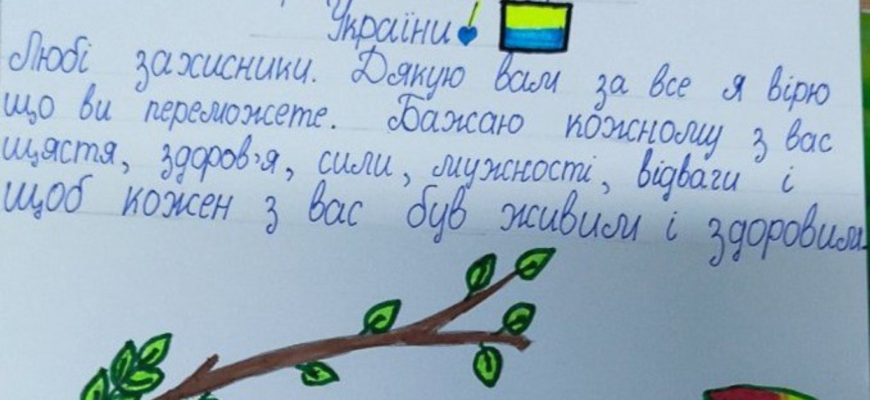 України
Любі захисники. Дякую вам за все я вірю
що ви переможете. Бажаю кожному з вас
щястя, здоров'я, сили, мужності, відваги і
щоб кожен з вас був живим і здоровим.